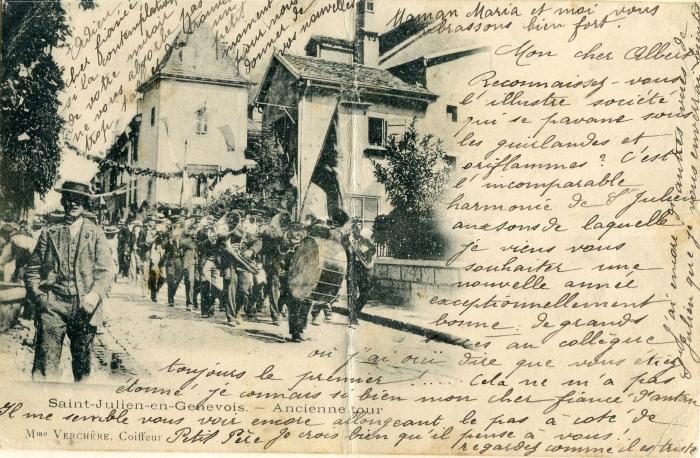 Maman Maria et moi vous
embrassons bien fort.
Mon cher Albert
Reconnaissez-vous
l'illustre société
qui se pavane sous
les guirlandes et
oriflammes? C'est
l'incomparable
harmonie de St Julien
aux sons de laquelle
je viens vous
souhaiter une
nouvelle année
exceptionnellement
bonne. de grands
succès au collège
où j'ai ouï dire que vous étiez
toujours le premier ........ Cela ne m'a pas
étonné, je connais si bien mon cher fiancé d'antan
Il me semble vous voir encore allongeant le pas à côté de
Petit Père Je crois bien qu'il pense à vous!
regardez comme il est triste
Saint-Julien-en-Genevois. — Ancienne tour
Mme VERCHÈRE, Coiffeur
cher fiancé
si la contemplation
de votre miroir
ne vous absorbe pas
trop,
moment
pour nous
donner de
nouvelles